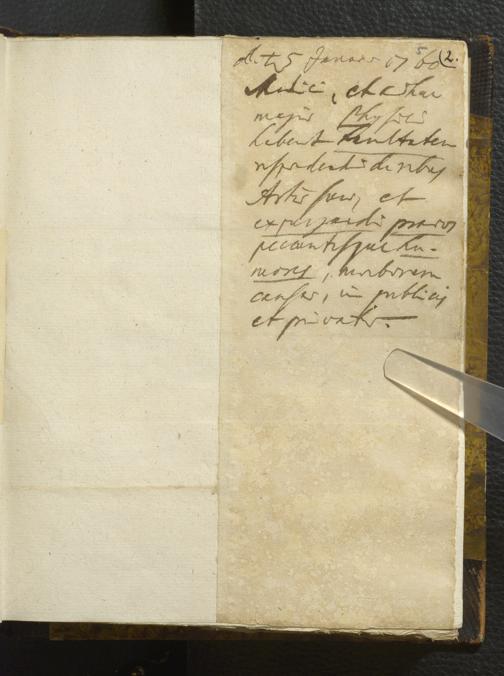 d. t. 5 Januar 1760 (2.
Medici, et adhuc
magis Physici
habent facultatem
respondendi de rebus
Artis suae, et
expurgandi pravos
peccantesque hu-
mores, morborum
causas, in publicis
et privatis.